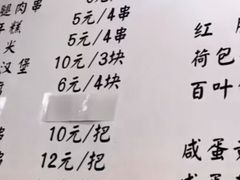 腿肉串
年糕 5元/4串
火 5元/4串
汉堡 10元/3块
6元/4块
串 10元/把
串 12元/把
红
荷包
百叶
咸蛋
咸蛋